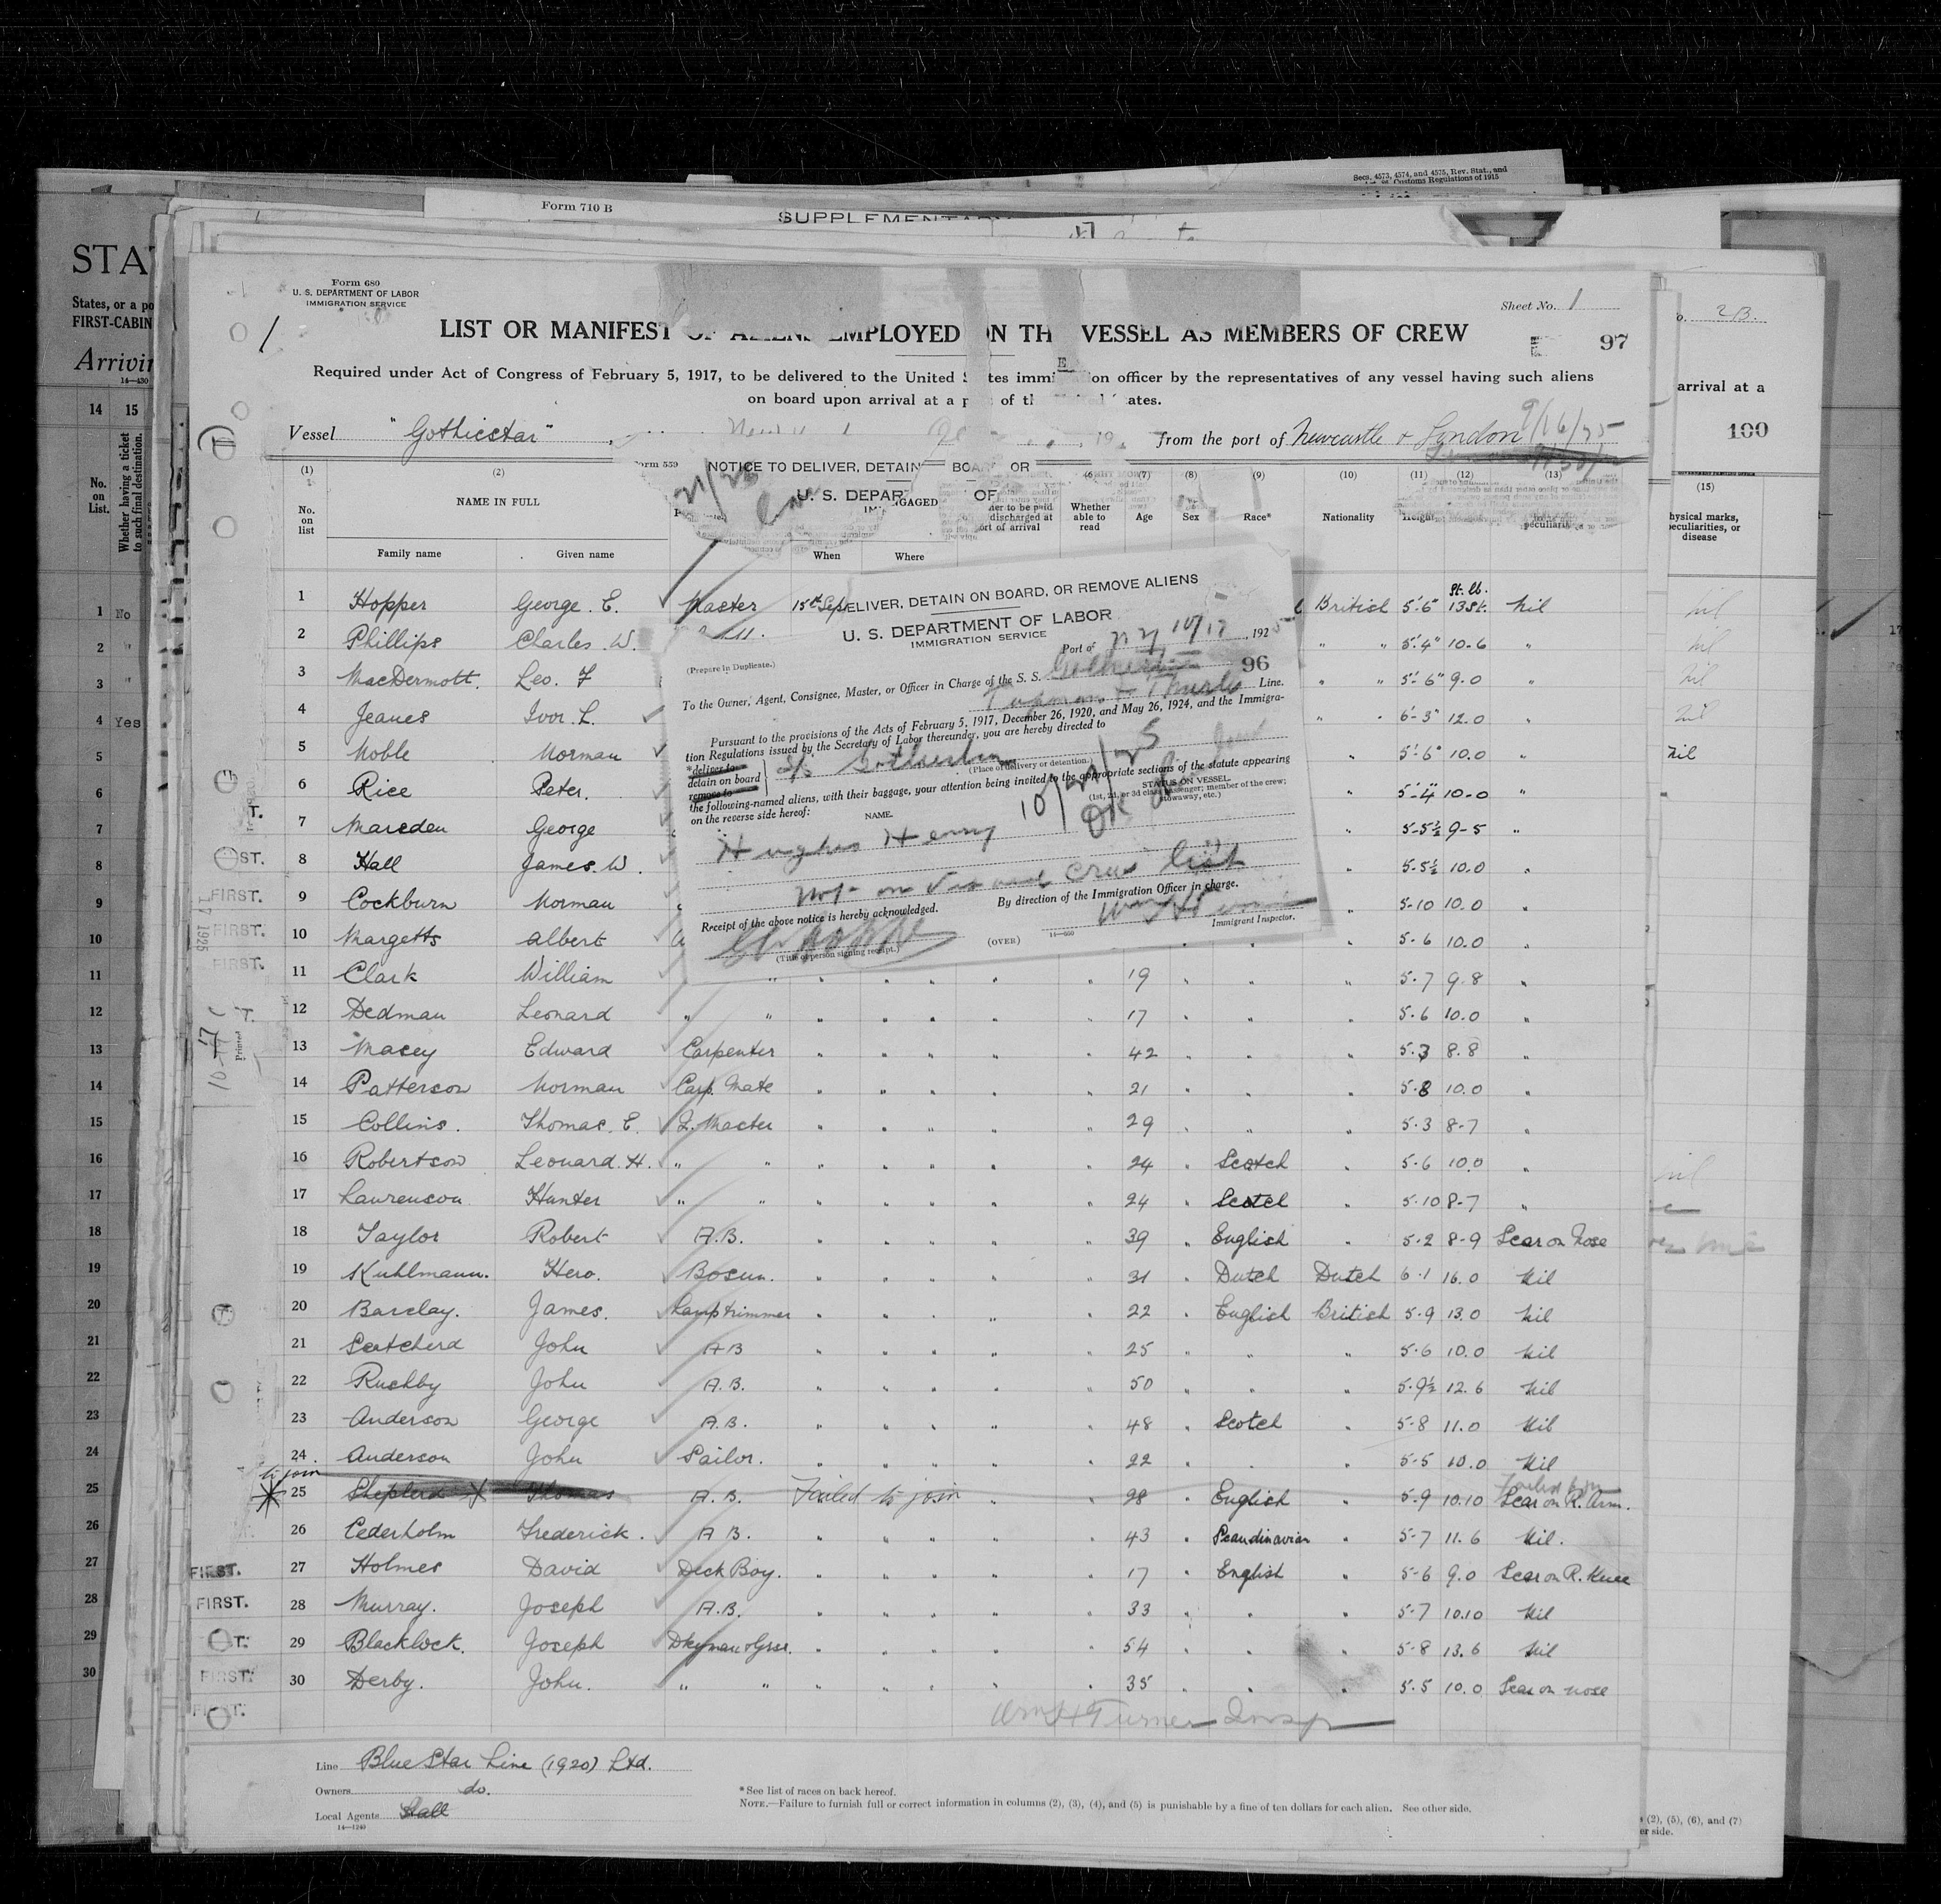 Secs. 4573, 4574, and 4575, Rev. Stat., and
Customs Regulations of 1915
Form 710 B
SUPPLEMENTARY
STA
States, or a po
FIRST-CABIN
Arrivin
14—430
14 15
No. on List.
Whether having a ticket to such final destination.
Form 680
U. S. DEPARTMENT OF LABOR
IMMIGRATION SERVICE
Sheet No. 1
2B.
LIST OR MANIFEST OF ALIENS EMPLOYED ON THE VESSEL AS MEMBERS OF CREW
97
Required under Act of Congress of February 5, 1917, to be delivered to the United States immigration officer by the representatives of any vessel having such aliens
on board upon arrival at a port of the United States.
arrival at a
100
Vessel "Gothicstar" from the port of Newcastle & London 9/16/25
Form 559 NOTICE TO DELIVER, DETAIN BOARD, OR
U. S. DEPAR OF
(1) (2) (7) (8) (9) (10) (11) (12) (13) (15)
No. on list
NAME IN FULL
Family name Given name
GAGED
When Where
discharged at
port of arrival
Whether able to read
Age Sex Race* Nationality Height
peculiarities
hysical marks, peculiarities, or disease
1 Hopper George. E. Master 15th Sep British 5'.6" St. lb. 13 St. Nil
2 Phillips Charles. W. " " 5'.4" 10-6 "
3 MacDermott. Leo. F " " 5'-6" 9.0 "
4 Jeanes Ivor. L. " " 6'-3" 12.0 "
5 Noble Norman " 5'-6" 10.0 "
6 Rice Peter. " 5'-4" 10-0 "
7 Marsden George " 5-5½ 9-5 "
8 Hall James. W. " 5-5½ 10.0 "
9 Cockburn Norman " 5-10 10.0 "
10 Margetts Albert " 5.6 10.0 "
11 Clark William " " " " " " 19 " " " 5.7 9.8 "
12 Dedman Leonard " " " " " " " 17 " " " 5.6 10.0 "
13 Macey Edward Carpenter " " " " " 42 " " " 5.3 8.8 "
14 Patterson Norman Carp. Mate " " " " " 21 " " " 5.8 10.0 "
15 Collins. Thomas. E. Q. Master " " " " " 29 " " " 5.3 8-7 "
16 Robertson Leonard. H. " " " " " " " 24 " Scotch " 5.6 10.0 "
17 Laurenson Hunter " " " " " " " 24 " Scotch " 5.10 8-7 "
18 Taylor Robert A.B. " " " " " 39 " English " 5.2 8-9 Scar on Nose
19 Kuhlmann. Hero. Bosun. " " " " " 31 " Dutch Dutch 6.1 16.0 Nil
20 Barclay. James. Lamptrimmer " " " " " 22 " English British 5.9 13.0 Nil
21 Scatcherd John AB " " " " " 25 " " " 5.6 10.0 Nil
22 Rushby John A.B. " " " " " 50 " " " 5.9½ 12.6 Nil
23 Anderson George A.B. " " " " " 48 " Scotch " 5-8 11.0 Nil
24. Anderson John Sailor. " " " " " 22 " " " 5-5 10.0 Nil
to join
25 Shepherd Thomas A.B. Failed to join " " 28 " English " 5-9 10.10 Scar on R. Arm.
26 Cederholm Frederick. A B. " " " " " 43 " Scandinavian " 5-7 11.6 Nil.
FIRST. 27 Holmes David Deck Boy. " " " " " 17 " English " 5-6 9.0 Scar on R. Knee
FIRST. 28 Murray. Joseph A.B. " " " " " 33 " " " 5-7 10.10 Nil
29 Blacklock. Joseph Dkyman & Grsr. " " " " " 54 " " " 5-8 13.6 Nil
FIRST. 30 Derby. John. " " " " " " " 35 " " " 5.5 10.0 Scar on nose
Wm H Turner Insp
DELIVER, DETAIN ON BOARD, OR REMOVE ALIENS
U. S. DEPARTMENT OF LABOR
IMMIGRATION SERVICE
(Prepare in Duplicate.)
Port of N Y, 10/17, 1925
96
To the Owner, Agent, Consignee, Master, or Officer in Charge of the S. S.
Line.
Pursuant to the provisions of the Acts of February 5, 1917, December 26, 1920, and May 26, 1924, and the Immigra-
tion Regulations issued by the Secretary of Labor thereunder, you are hereby directed to
*deliver to
detain on board
remove to
(Place of delivery or detention.)
the following-named aliens, with their baggage, your attention being invited to the appropriate sections of the statute appearing
on the reverse side hereof:
NAME.
STATUS ON VESSEL
(1st, 2d, or 3d class passenger; member of the crew; stowaway, etc.)
10/21/25
OK
Hughes Henry
not on visaed crew list
By direction of the Immigration Officer in charge.
Receipt of the above notice is hereby acknowledged.
Immigrant Inspector.
(Title of person signing receipt.)
(OVER)
14—550
Line Blue Star Line (1920) Ltd.
Owners do.
Local Agents
14—1240
*See list of races on back hereof.
NOTE.—Failure to furnish full or correct information in columns (2), (3), (4), and (5) is punishable by a fine of ten dollars for each alien. See other side.
(2), (5), (6), and (7)
er side.